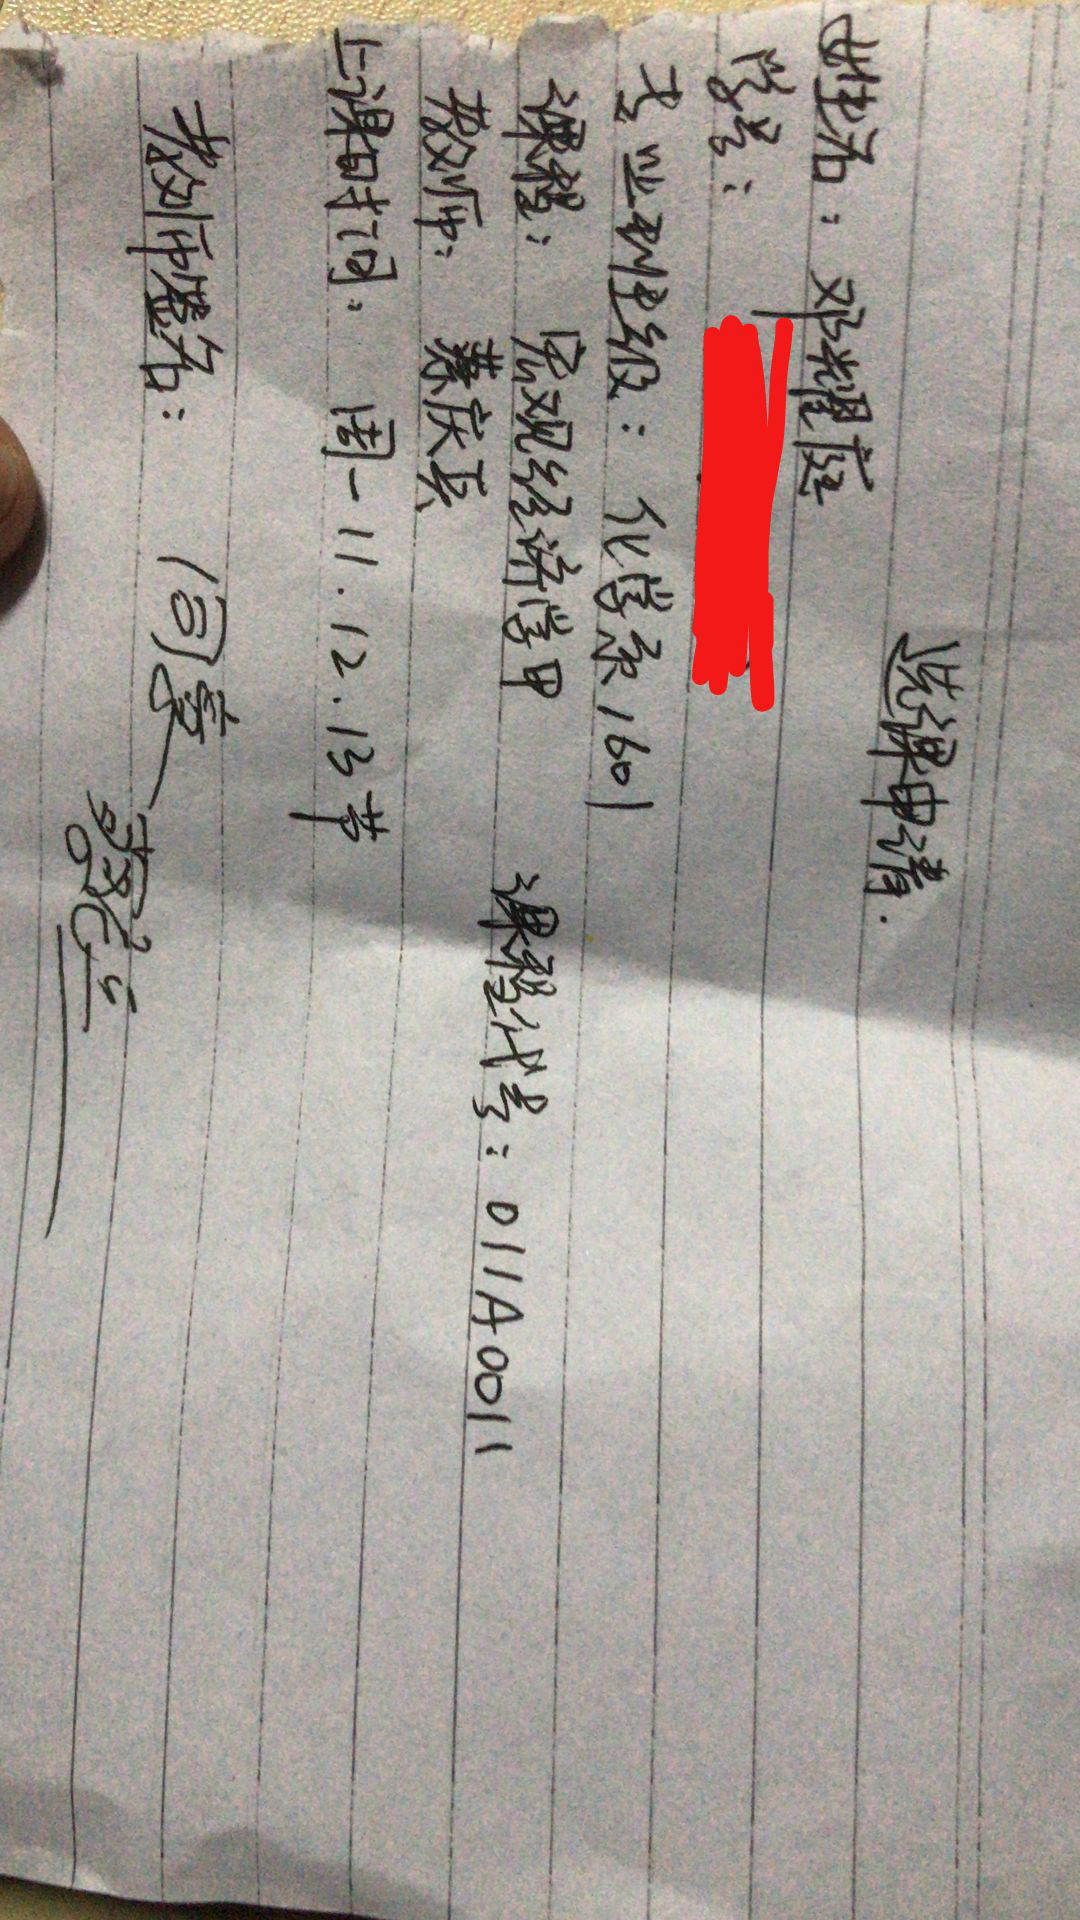 选课申请.
姓名：邓耀庭
学号：
专业班级：化学系1601
课程：宏观经济学甲 课程代号：011A0011
教师：蔡庆长
上课时间：周一11.12.13节
教师签名：
同意